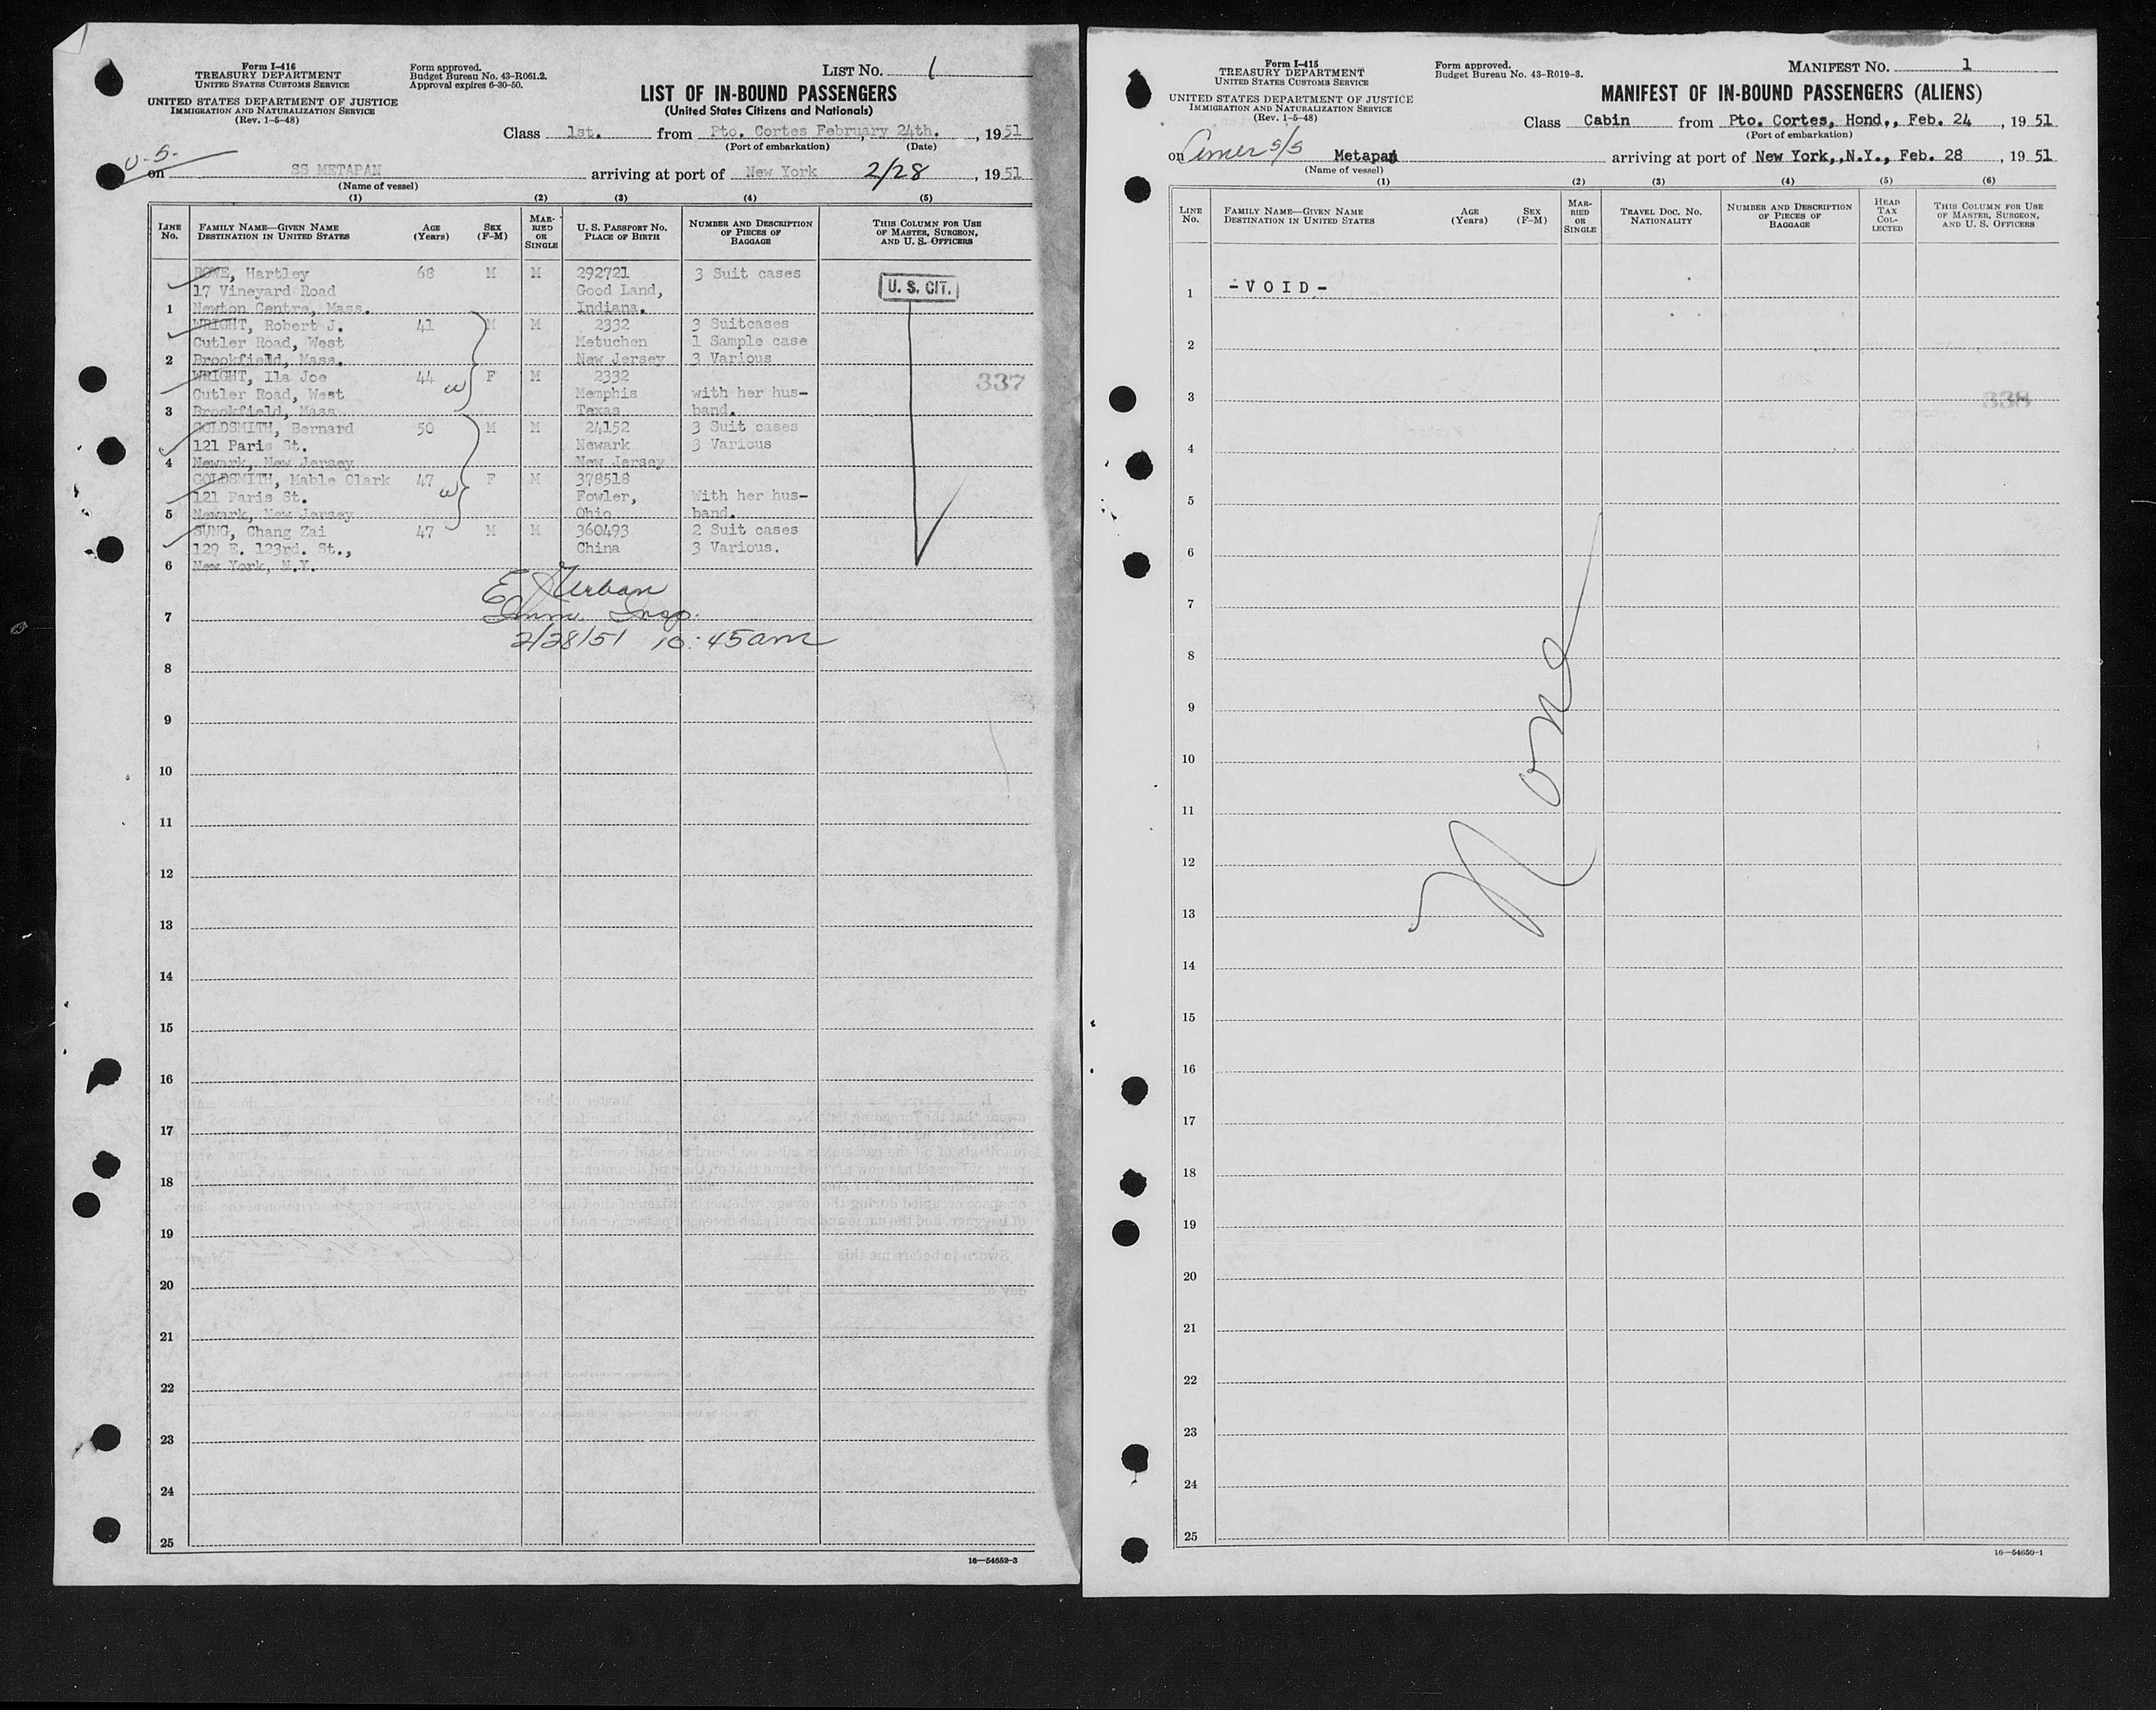 Form I-416
TREASURY DEPARTMENT
UNITED STATES CUSTOMS SERVICE
UNITED STATES DEPARTMENT OF JUSTICE
IMMIGRATION AND NATURALIZATION SERVICE
(Rev. 1-5-48)
Form approved.
Budget Bureau No. 43-R061.2.
Approval expires 6-30-50.
LIST NO. 1
LIST OF IN-BOUND PASSENGERS
(United States Citizens and Nationals)
Class 1st. from Pto. Cortes February 24th. , 1951
(Port of embarkation) (Date)
U-S-
on SS METAPAN arriving at port of New York 2/28 , 1951
(Name of vessel)
(1) (2) (3) (4) (5)
LINE No.
FAMILY NAME—GIVEN NAME
DESTINATION IN UNITED STATES
AGE (Years)
SEX (F-M)
MAR-RIED OR SINGLE
U. S. PASSPORT NO.
PLACE OF BIRTH
NUMBER AND DESCRIPTION OF PIECES OF BAGGAGE
THIS COLUMN FOR USE OF MASTER, SURGEON, AND U. S. OFFICERS
ROWE, Hartley 68 M M 292721 3 Suit cases
17 Vineyard Road Good Land,
1 Newton Centre, Mass. Indiana.
U. S. CIT.
WRIGHT, Robert J. 41 M M 2332 3 Suitcases
Cutler Road, West Metuchen 1 Sample case
2 Brookfield, Mass. New Jersey 3 Various
WRIGHT, Ila Joe 44 F M 2332
Cutler Road, West Memphis with her hus-
3 Brookfield, Mass Texas band.
337
GOLDSMITH, Bernard 50 M M 24152 3 Suit cases
121 Paris St. Newark 3 Various
4 Newark, New Jersey New Jersey
GOLDSMITH, Mable Clark 47 F M 378518
121 Paris St. Fowler, With her hus-
5 Newark, New Jersey Ohio band.
SUNG, Chang Zai 47 M M 360493 2 Suit cases
129 E. 123rd. St., China 3 Various.
6 New York, N.Y.
E Urban
7 Imm. Insp.
2/28/51 10:45am
8
9
10
11
12
13
14
15
16
17
18
19
20
21
22
23
24
25
16—54652-3
Form I-415
TREASURY DEPARTMENT
UNITED STATES CUSTOMS SERVICE
UNITED STATES DEPARTMENT OF JUSTICE
IMMIGRATION AND NATURALIZATION SERVICE
(Rev. 1-5-48)
Form approved.
Budget Bureau No. 43-R019-3.
MANIFEST NO. 1
MANIFEST OF IN-BOUND PASSENGERS (ALIENS)
Class Cabin from Pto. Cortes, Hond,, Feb. 24 , 1951
(Port of embarkation)
on Amer s/s Metapan arriving at port of New York,,N.Y., Feb. 28 , 1951
(Name of vessel)
(1) (2) (3) (4) (5) (6)
LINE No.
FAMILY NAME—GIVEN NAME
DESTINATION IN UNITED STATES
AGE (Years)
SEX (F-M)
MAR-RIED OR SINGLE
TRAVEL DOC. NO.
NATIONALITY
NUMBER AND DESCRIPTION OF PIECES OF BAGGAGE
HEAD TAX COL-LECTED
THIS COLUMN FOR USE OF MASTER, SURGEON, AND U. S. OFFICERS
1 -VOID-
2
3 338
4
5
6
7
8
9
10
11
None
12
13
14
15
16
17
18
19
20
21
22
23
24
25
16—54650-1